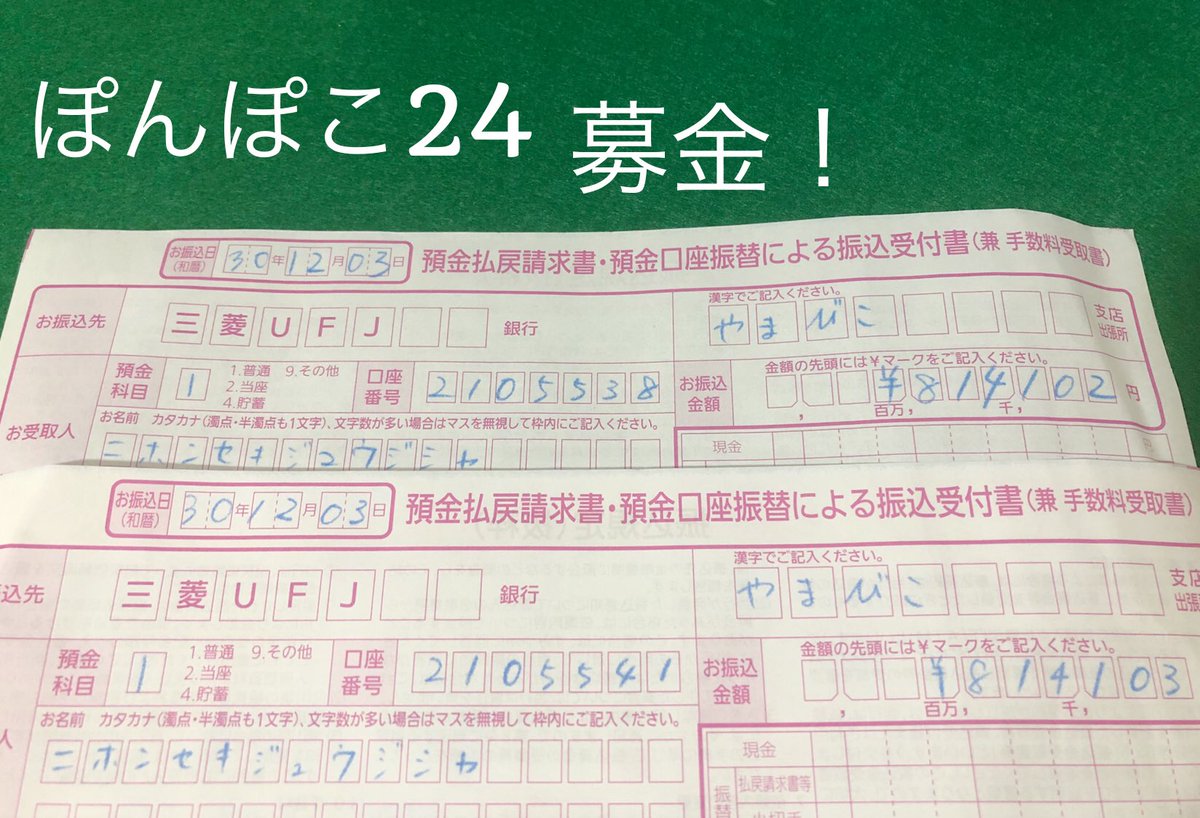 ぽんぽこ24 募金！
お振込日 (和暦) 30年12月03日 預金払戻請求書・預金口座振替による振込受付書(兼 手数料受取書)
漢字でご記入ください。
お振込先 三菱UFJ 銀行 やまびこ 支店 出張所
預金科目 1 1.普通 9.その他 2.当座 4.貯蓄 口座番号 2105538 お振込金額 金額の先頭には￥マークをご記入ください。 ¥814102 円
百万, 千,
お受取人 お名前 カタカナ(濁点・半濁点も1文字)、文字数が多い場合はマスを無視して枠内にご記入ください。
ニホンセキジュウジシャ 現金
お振込日 (和暦) 30年12月03日 預金払戻請求書・預金口座振替による振込受付書(兼 手数料受取書)
漢字でご記入ください。
込先 三菱UFJ 銀行 やまびこ 支店 出張所
預金科目 1 1.普通 9.その他 2.当座 4.貯蓄 口座番号 2105541 お振込金額 金額の先頭には￥マークをご記入ください。 ¥814103
百万, 千,
人 お名前 カタカナ(濁点・半濁点も1文字)、文字数が多い場合はマスを無視して枠内にご記入ください。
ニホンセキジュウジシャ 現金
振替 払戻請求書等